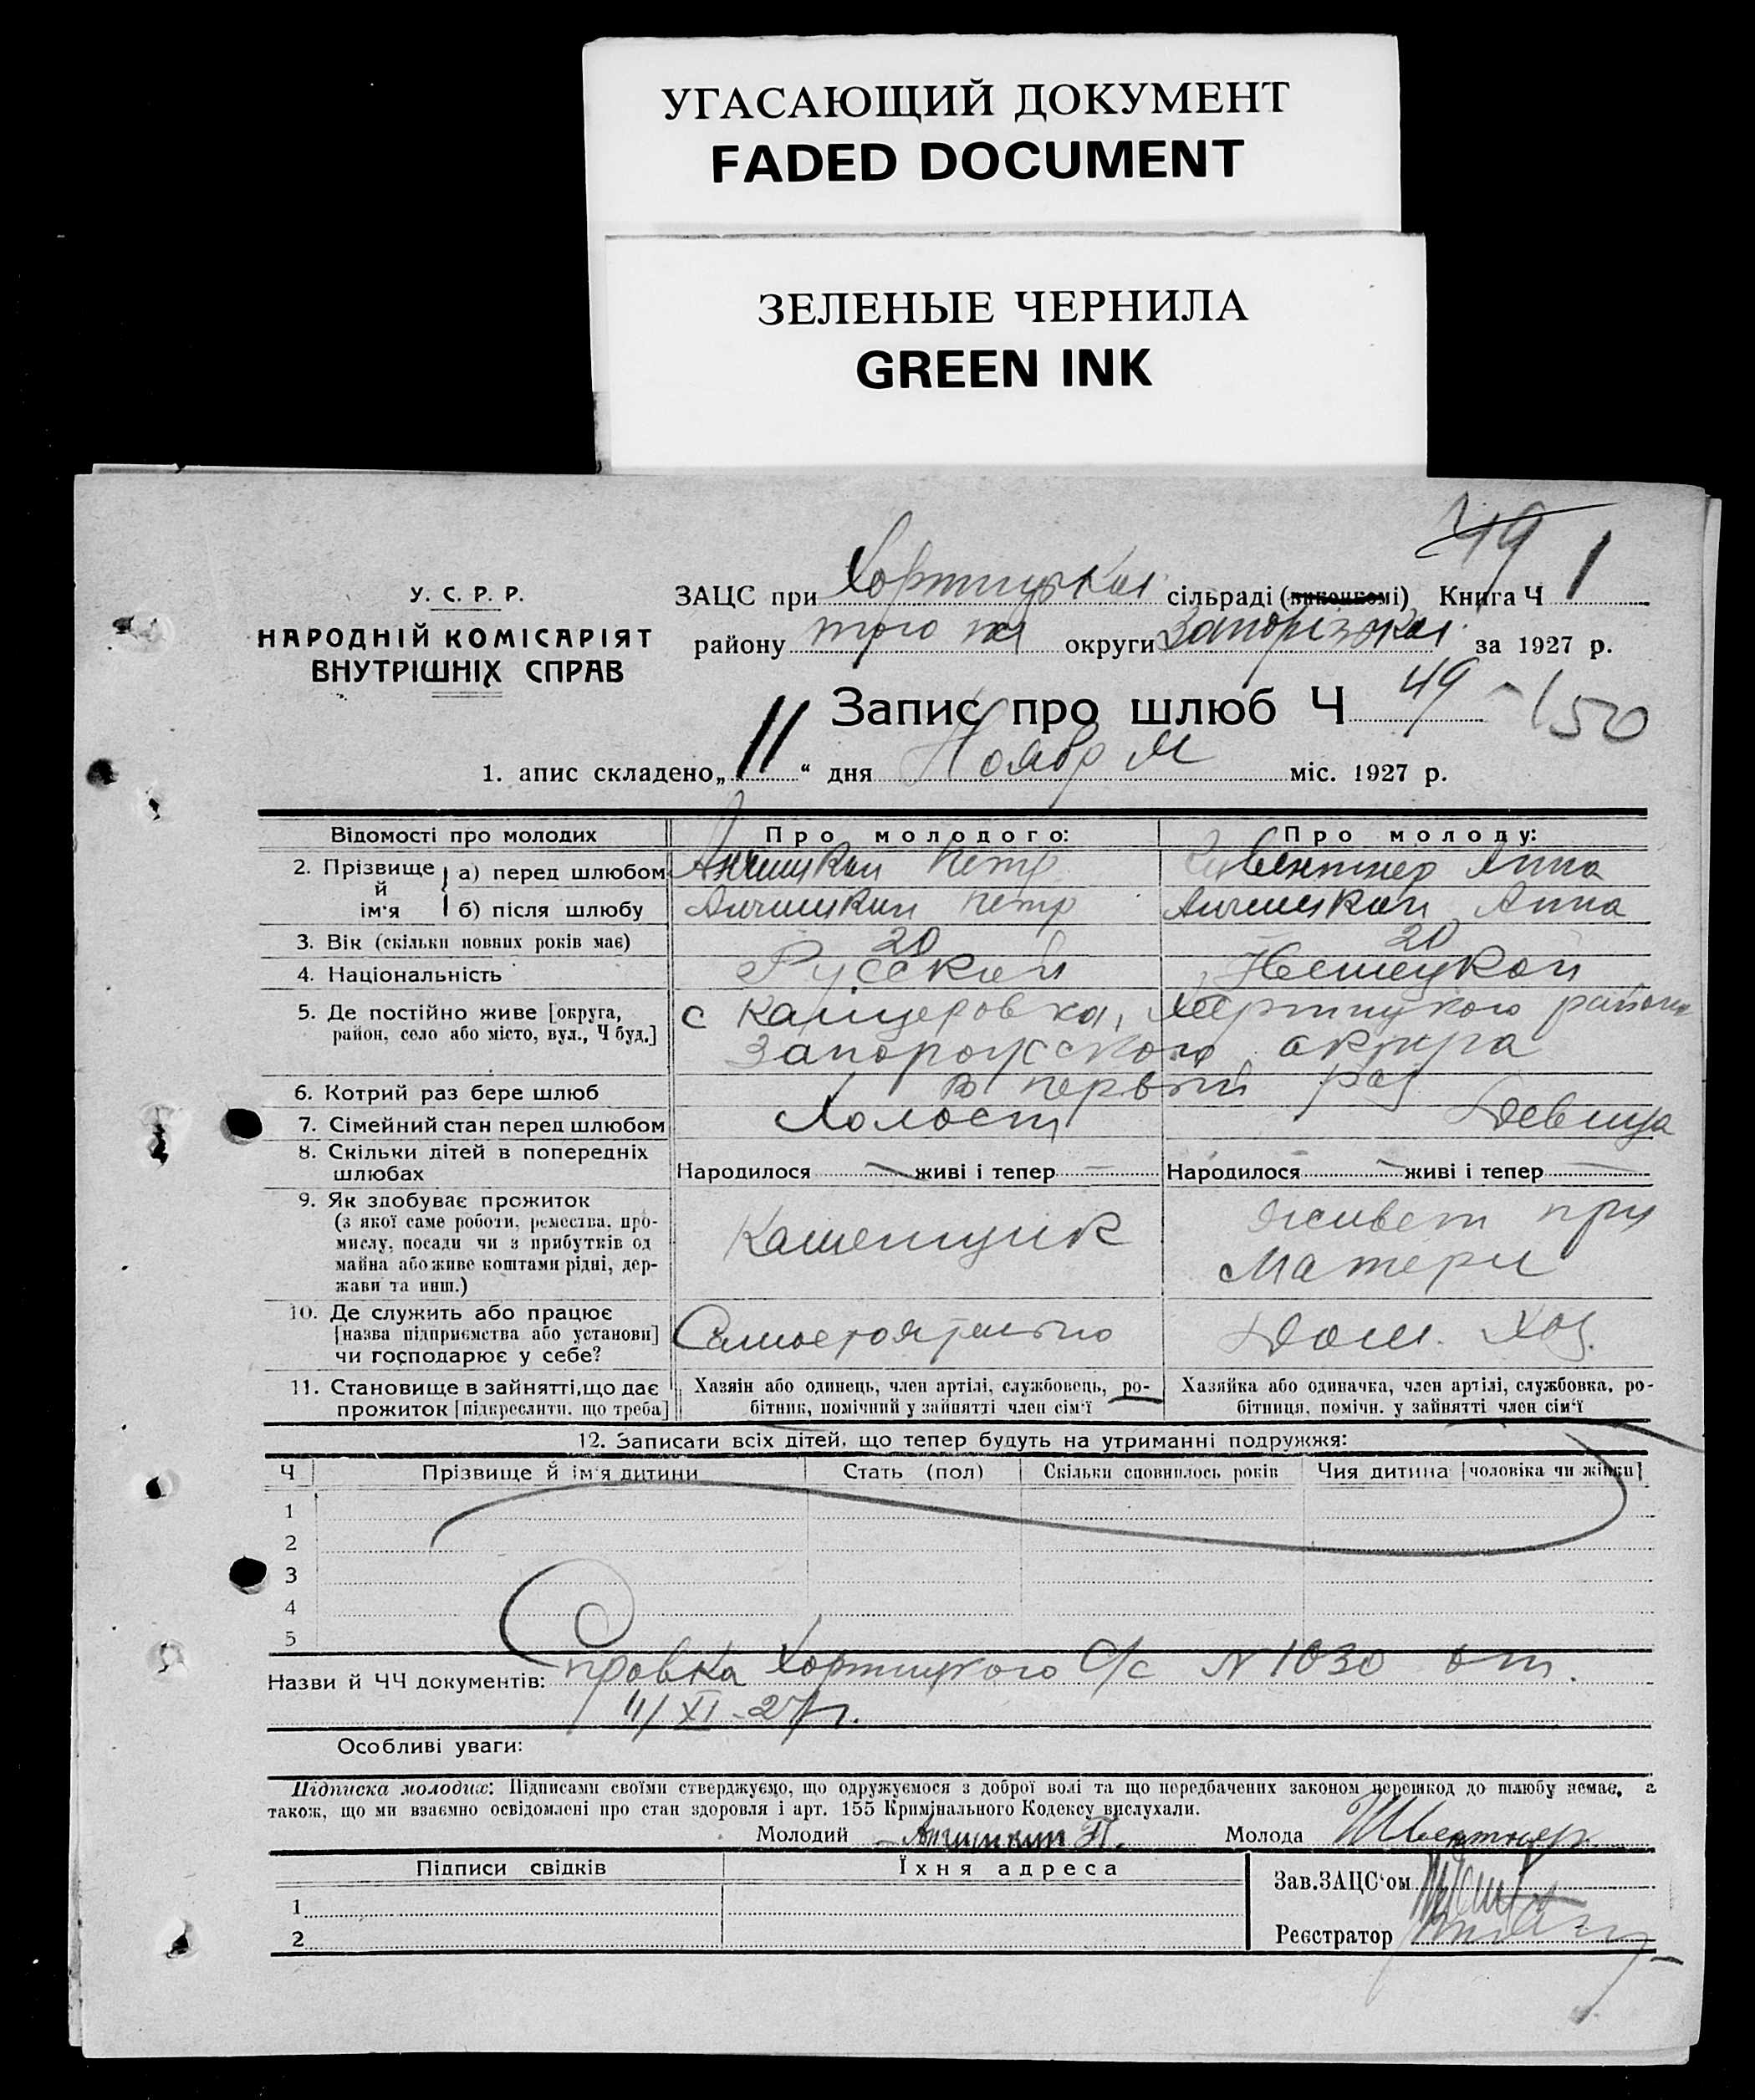 УГАСАЮЩИЙ ДОКУМЕНТ
FADED DOCUMENT
ЗЕЛЕНЫЕ ЧЕРНИЛА
GREEN INK
49
У. С. Р. Р.
НАРОДНІЙ КОМІСАРІЯТ
ВНУТРІШНІХ СПРАВ
ЗАЦС при Хортицькій сільраді (виконкомі) Книга Ч 1
району того ж округи Запорізької за 1927 р.
Запис про шлюб Ч 49 150
1. апис складено „11“ дня Ноября міс. 1927 р.
Відомості про молодих Про молодого: Про молоду:
2. Прізвище й ім'я
а) перед шлюбом Анчишкин Петр Швентнер Анна
б) після шлюбу Анчишкин Петр Анчишкин Анна
3. Вік (скільки повних років має) 20 20
4. Національність Русский Немецкой
5. Де постійно живе [округа, район, село або місто, вул., Ч буд.]
с Канцеровка, Хортицкого района
Запорожского округа
6. Котрий раз бере шлюб В первый раз
7. Сімейний стан перед шлюбом Холост Девица
8. Скільки дітей в попередніх шлюбах Народилося — живі і тепер — Народилося — живі і тепер —
9. Як здобуває прожиток
(з якої саме роботи, ремества, про-
мислу, посади чи з прибутків од
майна або живе коштами рідні, дер-
жави та инш.)
Каменщик
Живет при
Матери
10. Де служить або працює
[назва підприємства або установи]
чи господарює у себе?
Самостоятельно Дом. Хоз.
11. Становище в зайнятті, що дає
прожиток [підкреслити. що треба]
Хазяін або одинець, член артілі, службовець, ро-
бітник, помічний у зайнятті член сім'ї
Хазяйка або одиначка, член артілі, службовка, ро-
бітниця, помічн. у зайнятті член сім'ї
12. Записати всіх дітей, що тепер будуть на утриманні подружжя:
Ч Прізвище й ім'я дитини Стать (пол) Скільки сповнилось років Чия дитина [чоловіка чи жінки]
1
2
3
4
5
Назви й ЧЧ документів: Справка Хортицкого С/с N 1030 от
11/XI-27 г.
Особливі уваги:
Підписка молодих: Підписами своїми стверджуємо, що одружуємося з доброї волі та що передбачених законом перешкод до шлюбу немає, а
також, що ми взаємно освідомлені про стан здоровля і арт. 155 Кримінального Кодексу вислухали.
Молодий Анчишкин П. Молода Швентнер
Підписи свідків Їхня адреса
1
2
Зав. ЗАЦС'ом
Реєстратор